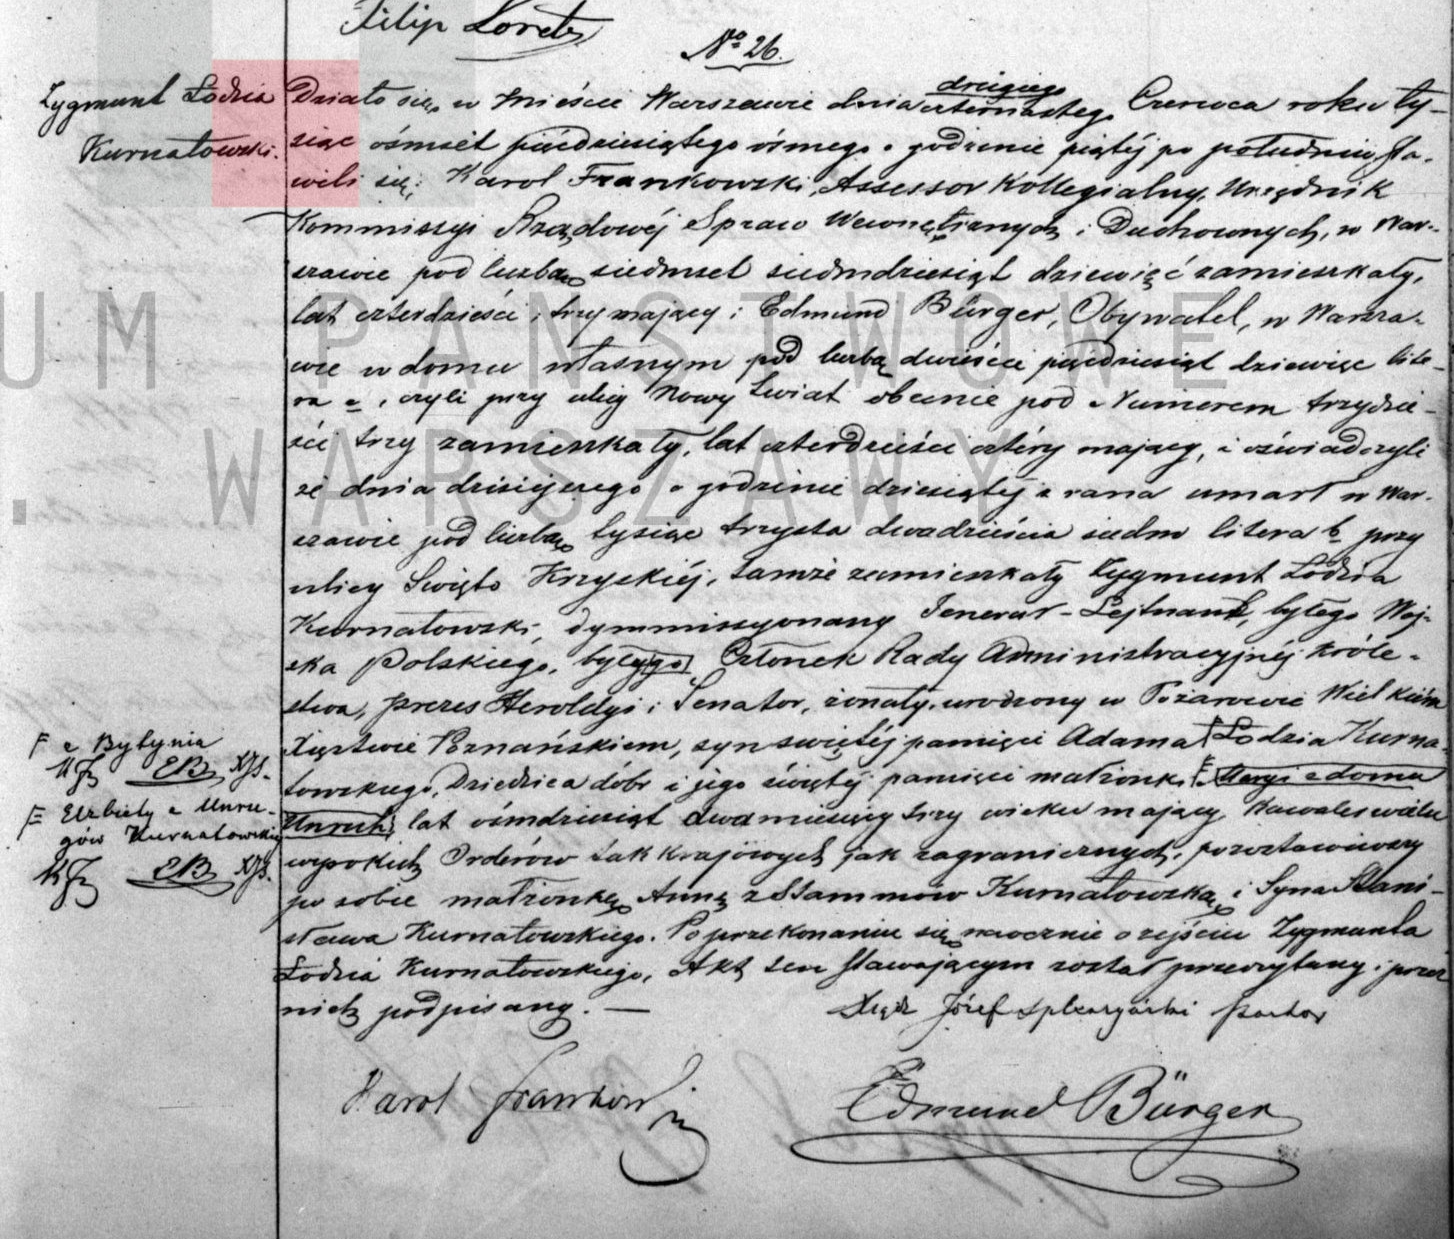 Filip Loreth
No 26.
Zygmunt Łodzia
Kurnatowski.
Działo się w mieście Warszawie dnia czternastego drugiego Czerwca roku ty-
siąc ośmset pięćdziesiątego ósmego o godzinie piątéj po południu sta-
wili się: Karol Frankowski, Assessor Kollegialny, Urzędnik
Kommissyi Rządowéj Spraw Wewnętrznych i Duchownych, w War-
szawie pod liczbą siedmset siedmdziesiąt dziewięć zamieszkały,
lat czterdzieści i trzy mający i Edmund Bürger, Obywatel, w Warsza-
wie w domu własnym pod liczbą dwieście pięćdziesiąt dziewięć lite-
ra e, czyli przy ulicy Nowy Świat obecnie pod Numerem trzydzie-
ści trzy zamieszkały, lat czterdzieści cztéry mający, i oświadczyli
że dnia dzisiejszego o godzinie dziesiątéj z rana umarł w War-
szawie pod liczbą tysiąc trzysta dwadzieścia siedm litera b przy
ulicy Swięto Krzyskiéj, tamże zamieszkały Zygmunt Łodzia
Kurnatowski, dymmissyonany Jenerał-Lejtnant, byłego Woj-
ska Polskiego, byłygo Członek Rady Administracyjnéj Króle-
stwa, Prezes Heroldyi i Senator, żonaty, urodzony w Pożarowie Wielkiém
Xięztwie Poznańskiem, syn swiętéj pamięci Adama Łodzia Kurna-
towskiego, Dziedzica dóbr i jego świętéj pamięci małżonki Maryi z domu
Unruh, lat ośmdziesiąt dwa miesięcy trzy wieku mający, Kawaler wielu
wysokich Orderów tak krajowych jak zagranicznych, pozostawiwszy
po sobie małżonkę Annę z Stammów Kurnatowską i Syna Stani-
sława Kurnatowskiego. Po przekonaniu się naocznie o zejściu Zygmunta
Łodzia Kurnatowskiego, Akt ten stawającym został przeczytany i przez
nich podpisany. —
z Bytynia
KF EB XJS.
Elżbiety z Unru-
gów Kurnatowskiéj
KF EB XJS.
Xiądz Józef Spleszyński Pastor
Karol Frankowski
Edmund Bürger
UM PAŃSTWOWE
. WARSZAWY